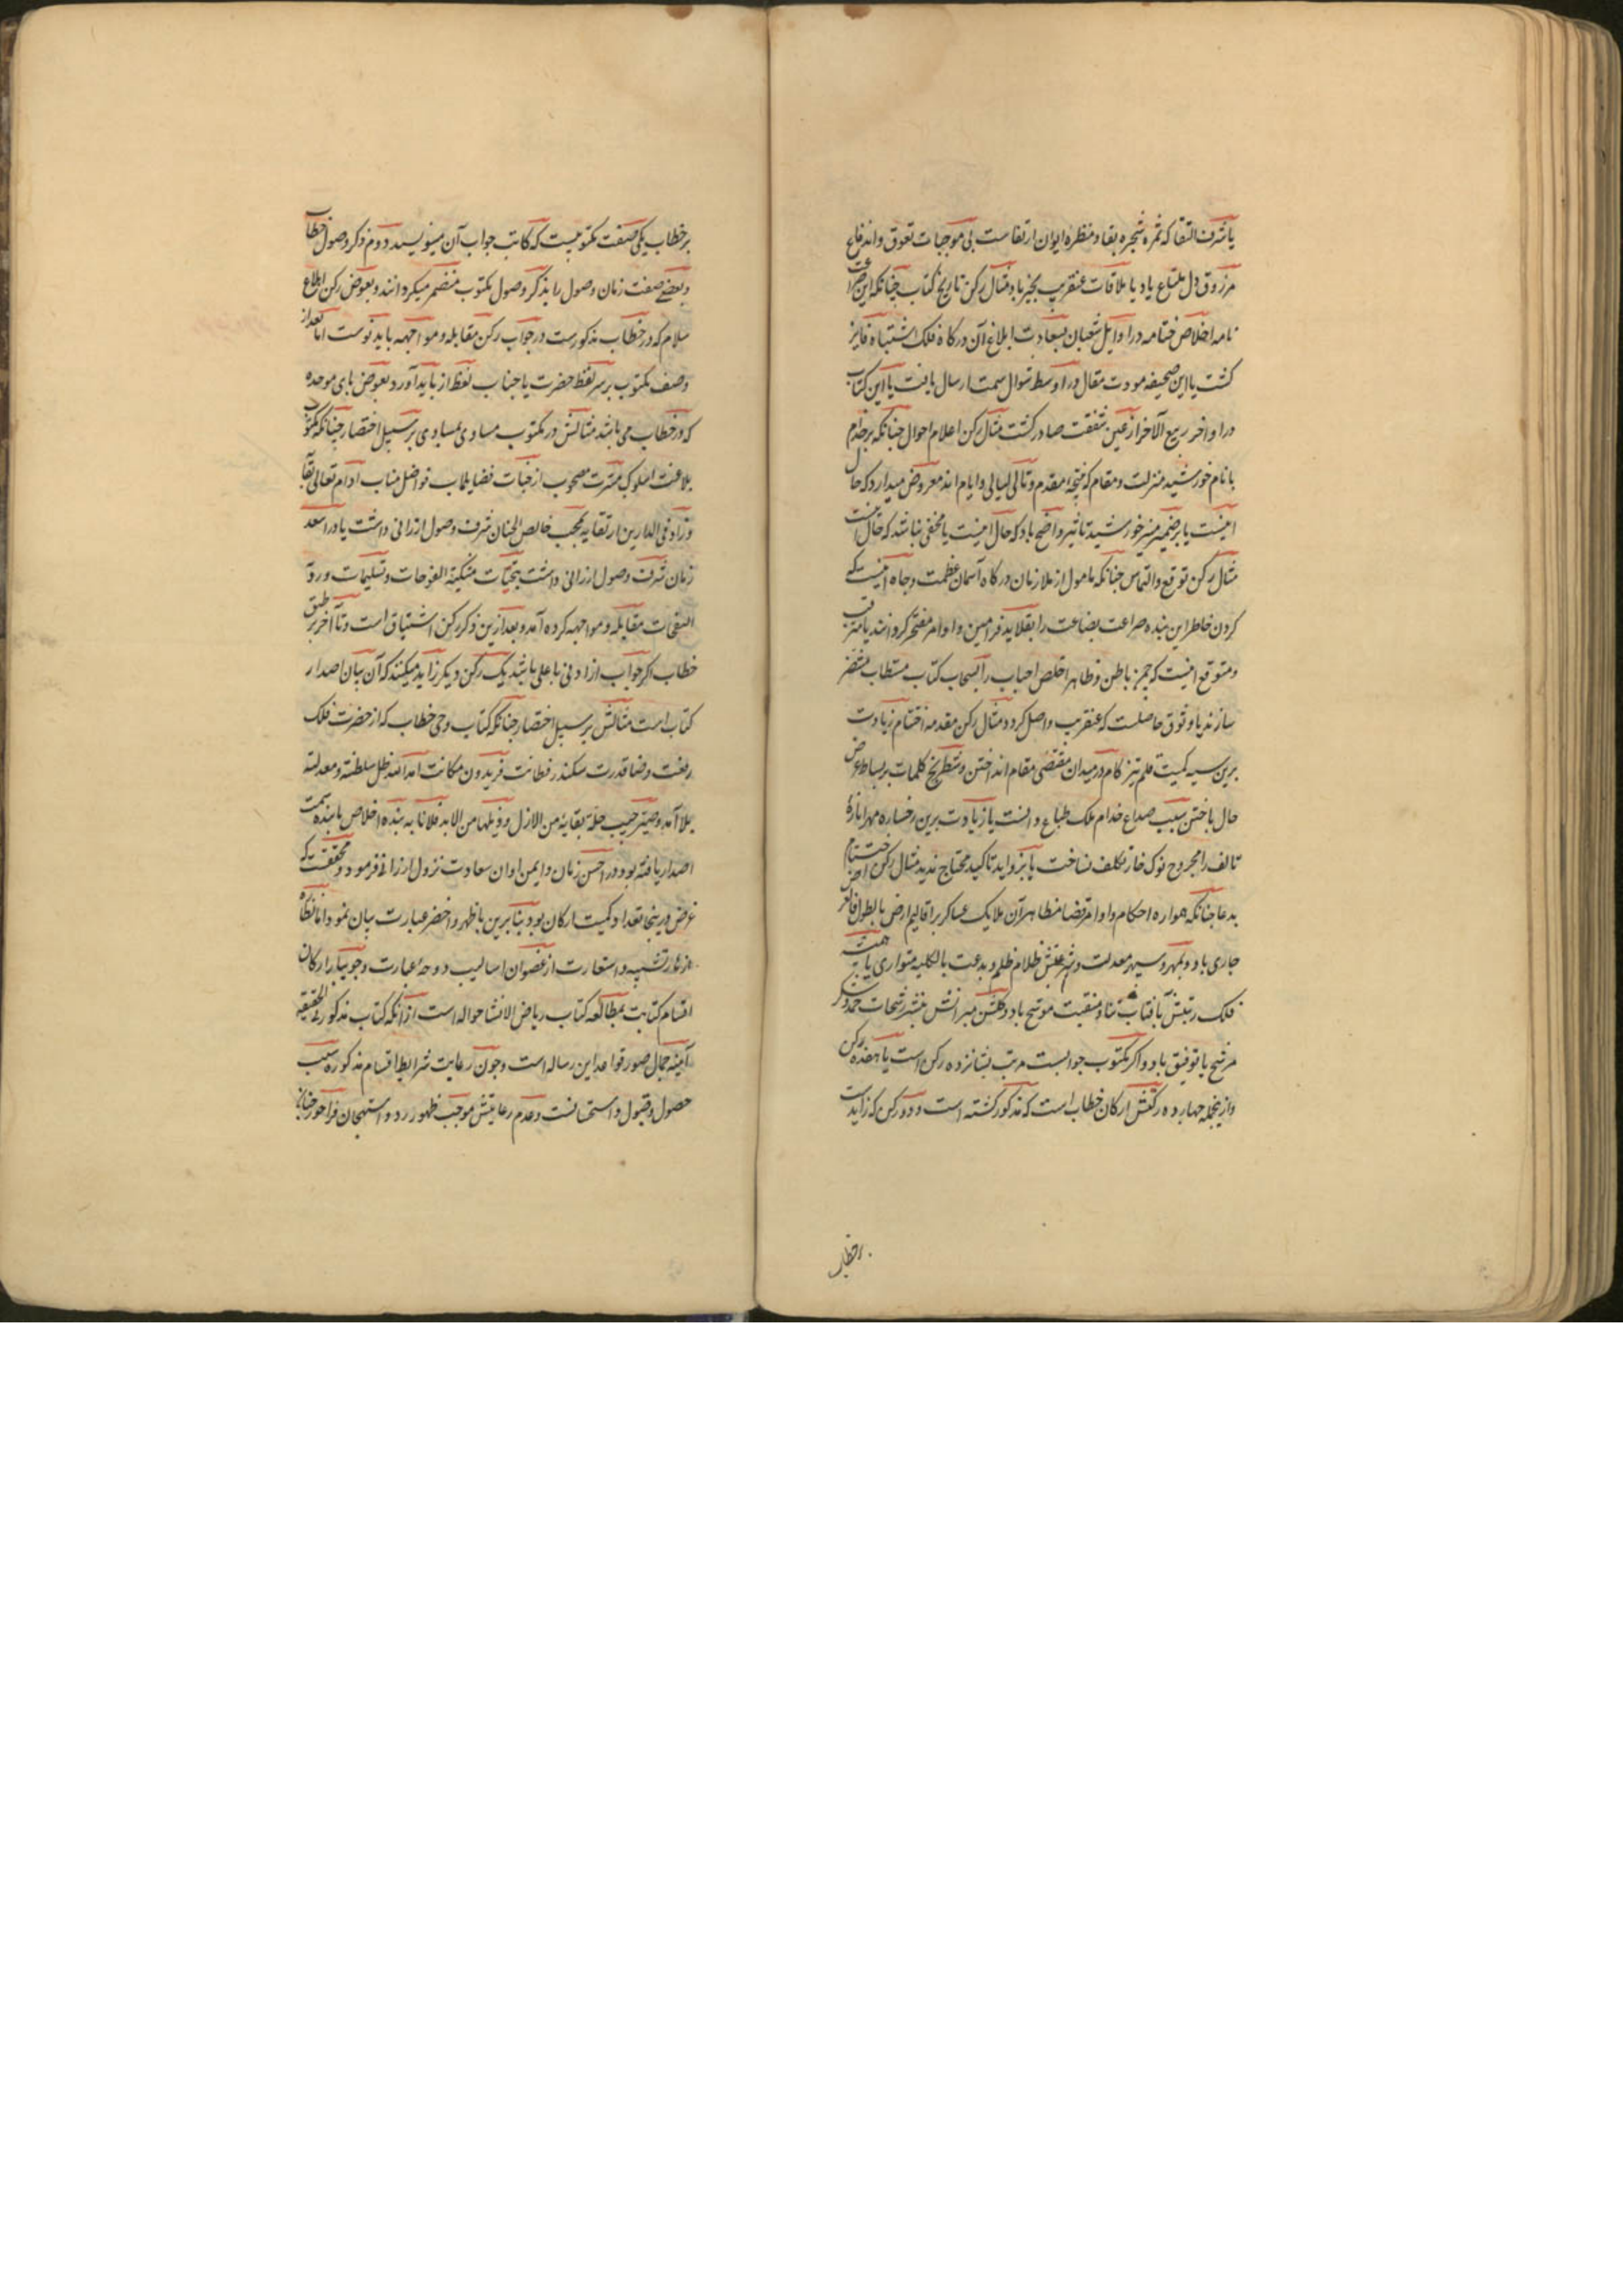 یا شرف التقا که ثمره شجره بقا و منظره ایوان ارتقاست بی موجبات تعوق و اندفاع
مرزوق دل ملتاع باد یا ملاقات عنقریب بخیر باد و مثال رکن تاریخ کتاب چنانکه این ضراعت
نامه اخلاص ختامه در اوایل شعبان بسعادت ابلاغ آن درکاه فلک اشتباه فایز
کشت یا این صحیفه مودت مقال در اواسط شوال سمت ارسال یافت یا این کتاب
در اواخر ربیع الآخر از عین شفقت صادر کشت مثال رکن اعلام احوال چنانکه بر خدام
با نام خورشید منزلت و مقام که نتیجه مقدم و تالی لیالی و ایام اند معروض میدارد که حال
اینست یا بر ضمیر منیر خورشید تاثیر واضح باد که حال اینست یا مخفی نباشد که حال اینست
مثال رکن توقع و التماس چنانکه مامول از ملازمان درکاه آسمان عظمت و جاه اینست که
کردن خاطر این بنده ضراعت بضاعت را بقلاید فرامین و اوامر مفتخر کردانند یا مترقب
و متوقع اینست که چمن باطن و ظاهر اخلص احباب را بسحاب کتاب مستطاب مخضر
سازند یا وثوق حاصلست که عنقریب واصل کردد و مثال رکن مقدمه اختتام زیادت
برین سیه کمیت قلم تیز کام در میدان مقتضی مقام انداختن و شطرنج کلمات بر بساط عرض
حال باختن سبب صداع خدام ملک طباع دانست یا زیادت برین رخساره مهر اناره
تالف را مجروح نوک خار تکلف نساخت یا بزواید تاکید محتاج ندید مثال رکن اختتام
بدعا چنانکه همواره احکام و اوامر قضا مظاهر آن ملایک عساکر بر اقالیم ارض بالطول و العرض
جاری باد و بمهر و سپهر معدلت و شرعتش ظلام ظلم و بدعت بالکلیه متواری یا همیشه
فلک رتبتش بآفتاب ثنا و منقبت موشح باد و کلشن میرانش بنشر رشحات حمد و شکر
مرشح یا توفیق باد و اکر مکتوب جوابست مرتب بشانزده رکن است یا هفده رکن
و ازینجمله چهارده رکنش ارکان خطاب است که مذکور کشته است و دو رکن که زایدست
بر خطاب
بر خطاب یکی صفت مکتوبیست که کاتب جواب آن مینویسد دوم ذکر وصول خطاب
و بعضی صفت زمان وصول را بذکر وصول مکتوب منضم میکردانند و بعوض رکن ابلاغ
سلام که در خطاب مذکورست در جواب رکن مقابله و مواجهه باید نوشت اما بعد از
وصف مکتوب بر سر لفظ حضرت یا جناب لفظ از باید آورد بعوض بای موحده
که در خطاب می باشد مثالش در مکتوب مساوی بمساوی بر سبیل اختصار چنانکه مکتوب
بلاغت اسلوب مسرت مصحوب از جناب فضایلماب فواضل مناب ادام تعالی بقاه
و زاد فی الدارین ارتقایه بمحب خالص الجنان شرف وصول ارزانی داشت یا در اسعد
زمان شرف وصول ارزانی داشت بتحیات مسکیة الفوحات و تسلیمات وردیة
النفحات مقابله و مواجهه کرده آمد و بعد ازین ذکر رکن اشتیاق است و تا آخر بر طبق
خطاب اکر جواب از ادنی باعلی باشد یک رکن دیکر زاید میکنند که آن بیان اصدار
کتاب است مثالش بر سبیل اختصار چنانکه کتاب وحی خطاب که از حضرت فلک
رفعت و قضا قدرت سکندر فطانت فریدون مکانت امد الله ظل سلطنته و معدلته
بلا آمد و صیر جیب حلة بقایه من الازل و ذیلها من الابد فلانا به بنده اخلاص پاینده سمت
اصدار یافته بود در احسن زمان و ایمن اوان سعادت نزول ارزانی فرمود و محققست که
غرض درینجا تعداد کمیت ارکان بود بنابرین باظهر و اخصر عبارت بیان نمود اما نظاره
ازهار تشبیه و استعارت از غصون اسالیب دوحه عبارت و جویبار ارکان
اقسام کتابت بمطالعه کتاب ریاض الانشا حواله است از آنکه کتاب مذکور فی الحقیقه
آینه جمال صور قواعد این رساله است و چون رعایت شرایط اقسام مذکوره سبب
حصول و قبول و استحسانست و عدم رعایتش موجب ظهور رد و استهجان فراخور چنان